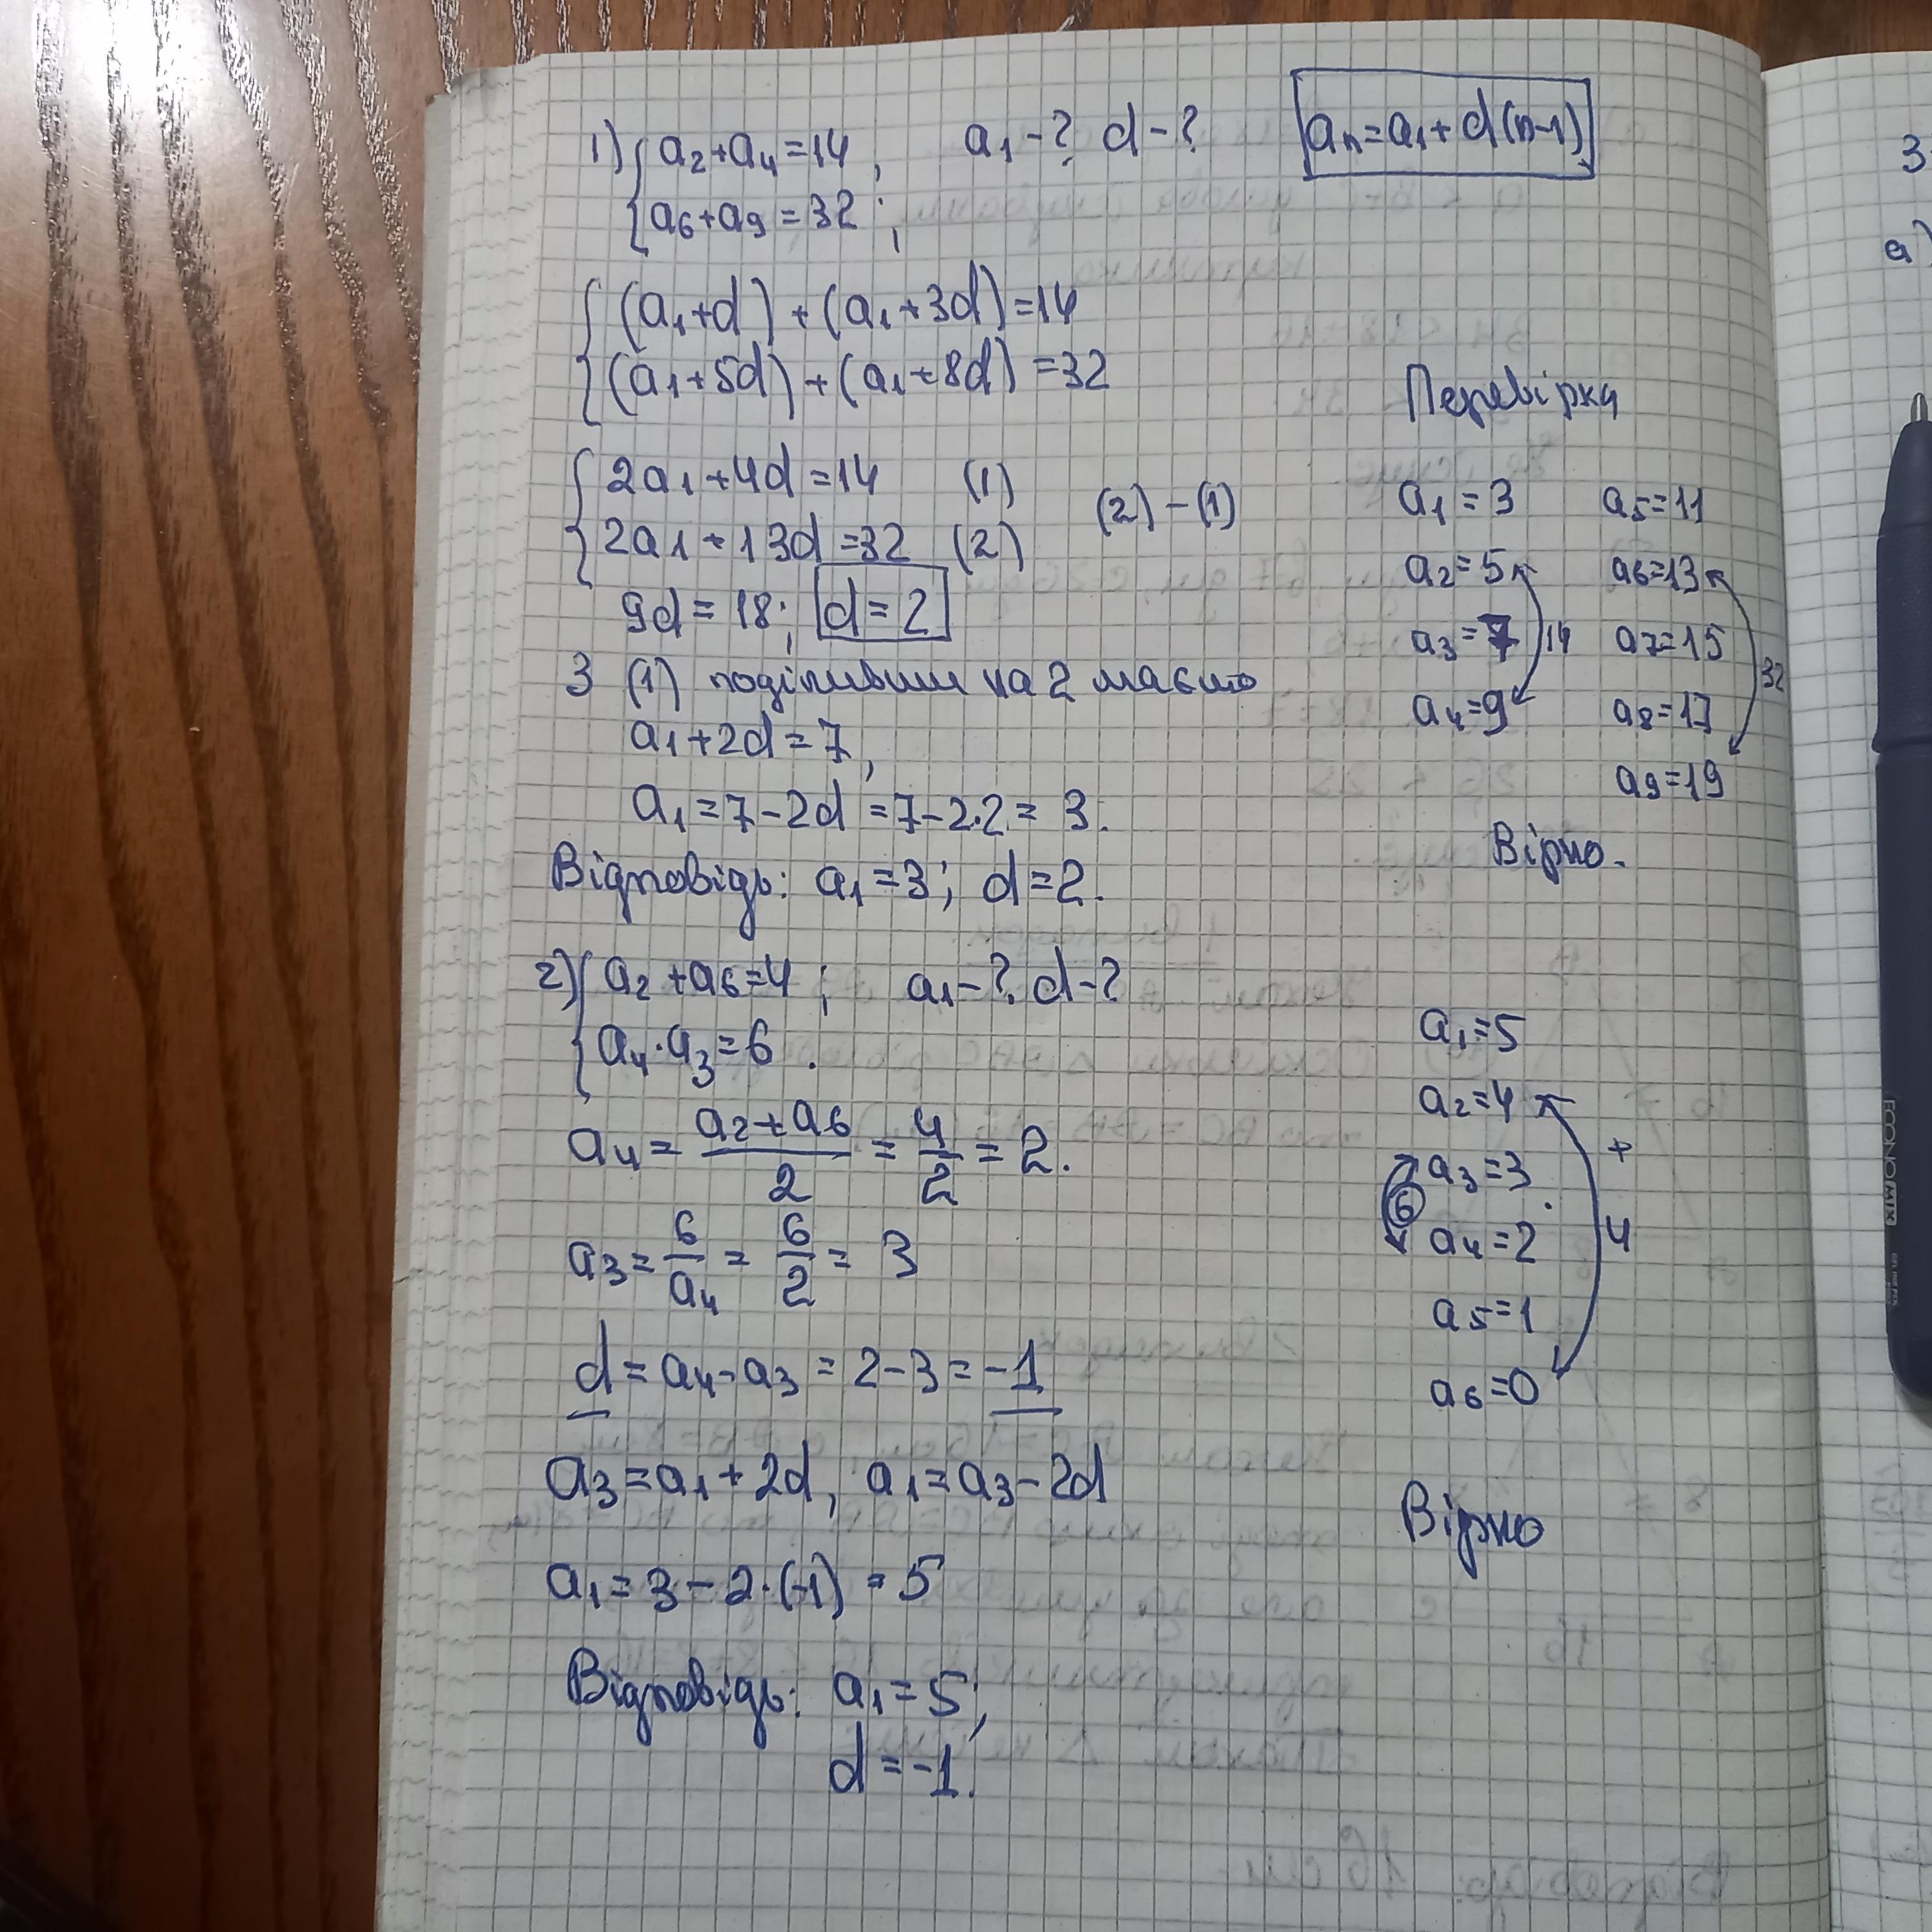 1) { a₂+a₄=14, a₁-? d-? aₙ=a₁+d(n-1)
{ a₆+a₉=32;
{ (a₁+d)+(a₁+3d)=14
{ (a₁+5d)+(a₁+8d)=32
{ 2a₁+4d=14 (1)
{ 2a₁+13d=32 (2) (2)-(1)
9d=18; d=2
З (1) поділивши на 2 маємо
a₁+2d=7,
a₁=7-2d=7-2·2=3.
Відповідь: a₁=3; d=2.
Перевірка
a₁=3 a₅=11
a₂=5 a₆=13
a₃=7 14 a₇=15
32
a₄=9 a₈=17
a₉=19
Вірно.
2) { a₂+a₆=4; a₁-? d-?
{ a₄·a₃=6.
a₄=(a₂+a₆)/2=4/2=2.
a₃=6/a₄=6/2=3
d=a₄-a₃=2-3=-1
a₃=a₁+2d, a₁=a₃-2d
a₁=3-2·(-1)=5
Відповідь: a₁=5;
d=-1.
a₁=5
a₂=4
+
a₃=3
6 ·
a₄=2 4
a₅=1
a₆=0
Вірно
3
а)
ECONOMIX